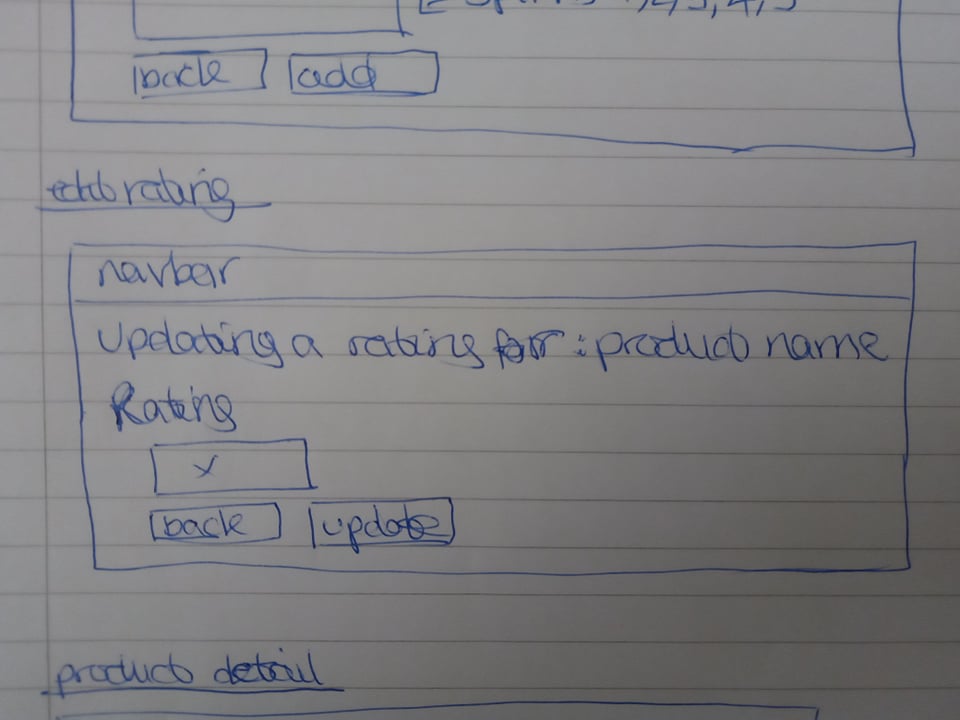 back add
edit rating
navbar
updating a rating for : product name
Rating
x
back update
product detail